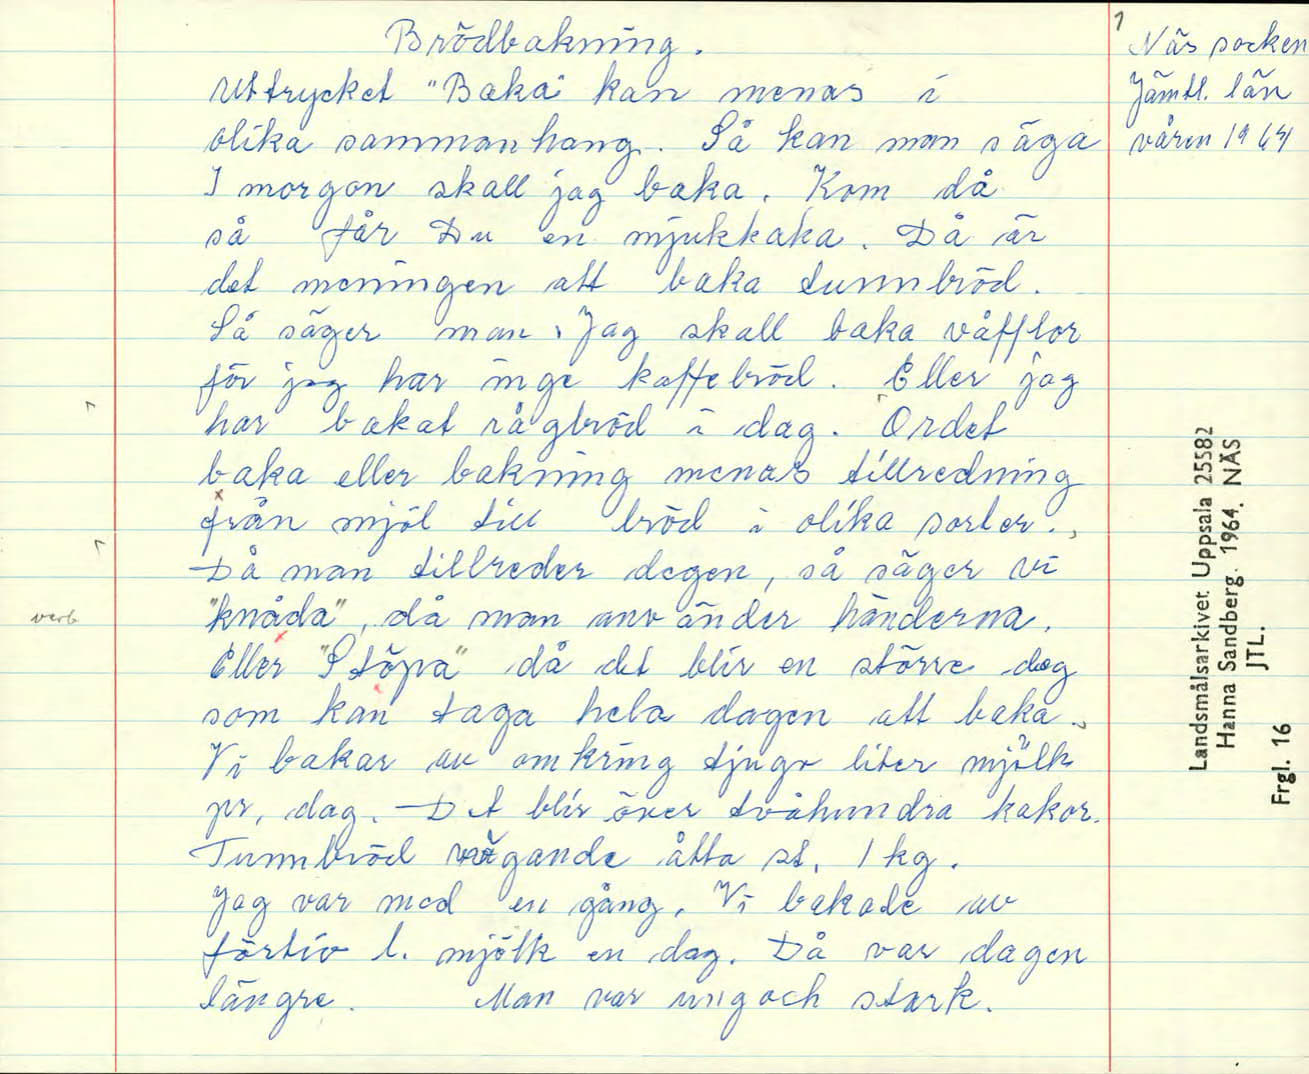 1
Brödbakning.
Uttrycket "Baka" kan menas i
olika sammanhang. Så kan man säga
I morgon skall jag baka. Kom då
så får Du en mjukkaka. Då är
det meningen att baka tunnbröd.
Så säger man. Jag skall baka våfflor
för jag har inge kaffebröd. Eller jag
har bakat rågbröd i dag. Ordet
baka eller bakning menas tillredning
från mjöl till bröd i olika sorter.
Då man tillreder degen, så säger vi
"knåda", då man använder händerna.
Eller "Stöpa" då det blir en större deg
som kan taga hela dagen att baka.
Vi bakar av omkring tjugo liter mjölk
pr, dag. Det blir över tvåhundra kakor.
Tunnbröd vägande åtta st. 1 kg.
Jag var med en gång. Vi bakade av
förtio l. mjölk en dag. Då var dagen
längre. Man var ung och stark.
verb
Näs socken
Jämtl. län
våren 1964
Landsmålsarkivet Uppsala 25582
Hanna Sandberg. 1964. NÄS
JTL.
Frgl. 16